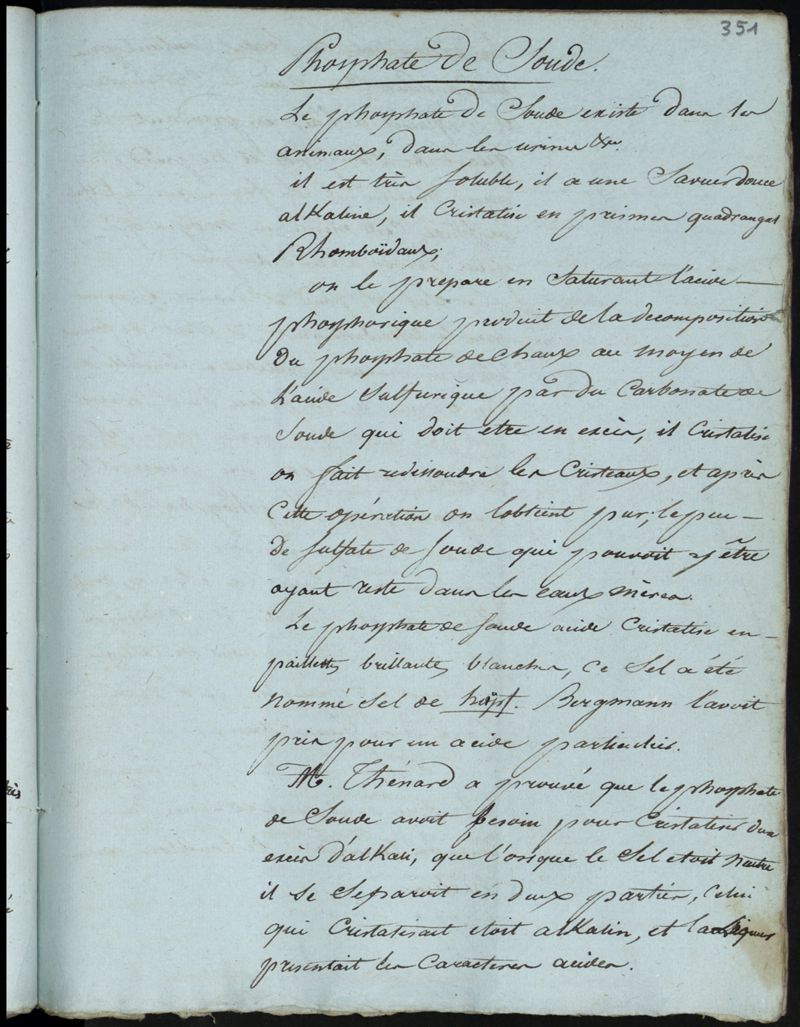 351
Phosphate de Soude.
Le phosphate de Soude existe dans les
animaux, dans les urines &c.
il est très soluble, il a une Saveur douce
alKaline, il Cristalise en prismes quadrangul
Rhomboïdaux;
on le prepare en Saturant l'acide
phosphorique produit de la decomposition
Du phosphate de Chaux au moyen de
L'acide Sulfurique par du Carbonate de
Soude qui doit etre en excès, il Cristalise
on fait redissoudre les Cristeaux, et après
Cette opération on l'obtient pur; le peu
De sulfate de soude qui pouvoit y être
ayant resté dans les eaux mères.
Le phosphate de soude acide Cristalise en
paillettes brillantes blanches, ce Sel a été
nommé Sel de . Bergmann l'avoit
pris pour un acide particulier.
M. Thénard a prouvé que le phosphate
de Soude avoit besoin pour Cristaliser d'un
excès d'alKali, que l'orsque le Sel etoit Neutre
il se Separoit en deux parties, Celui
qui Cristalisait etoit alKalin, et la liqueur
presentait les Caracteres acides.